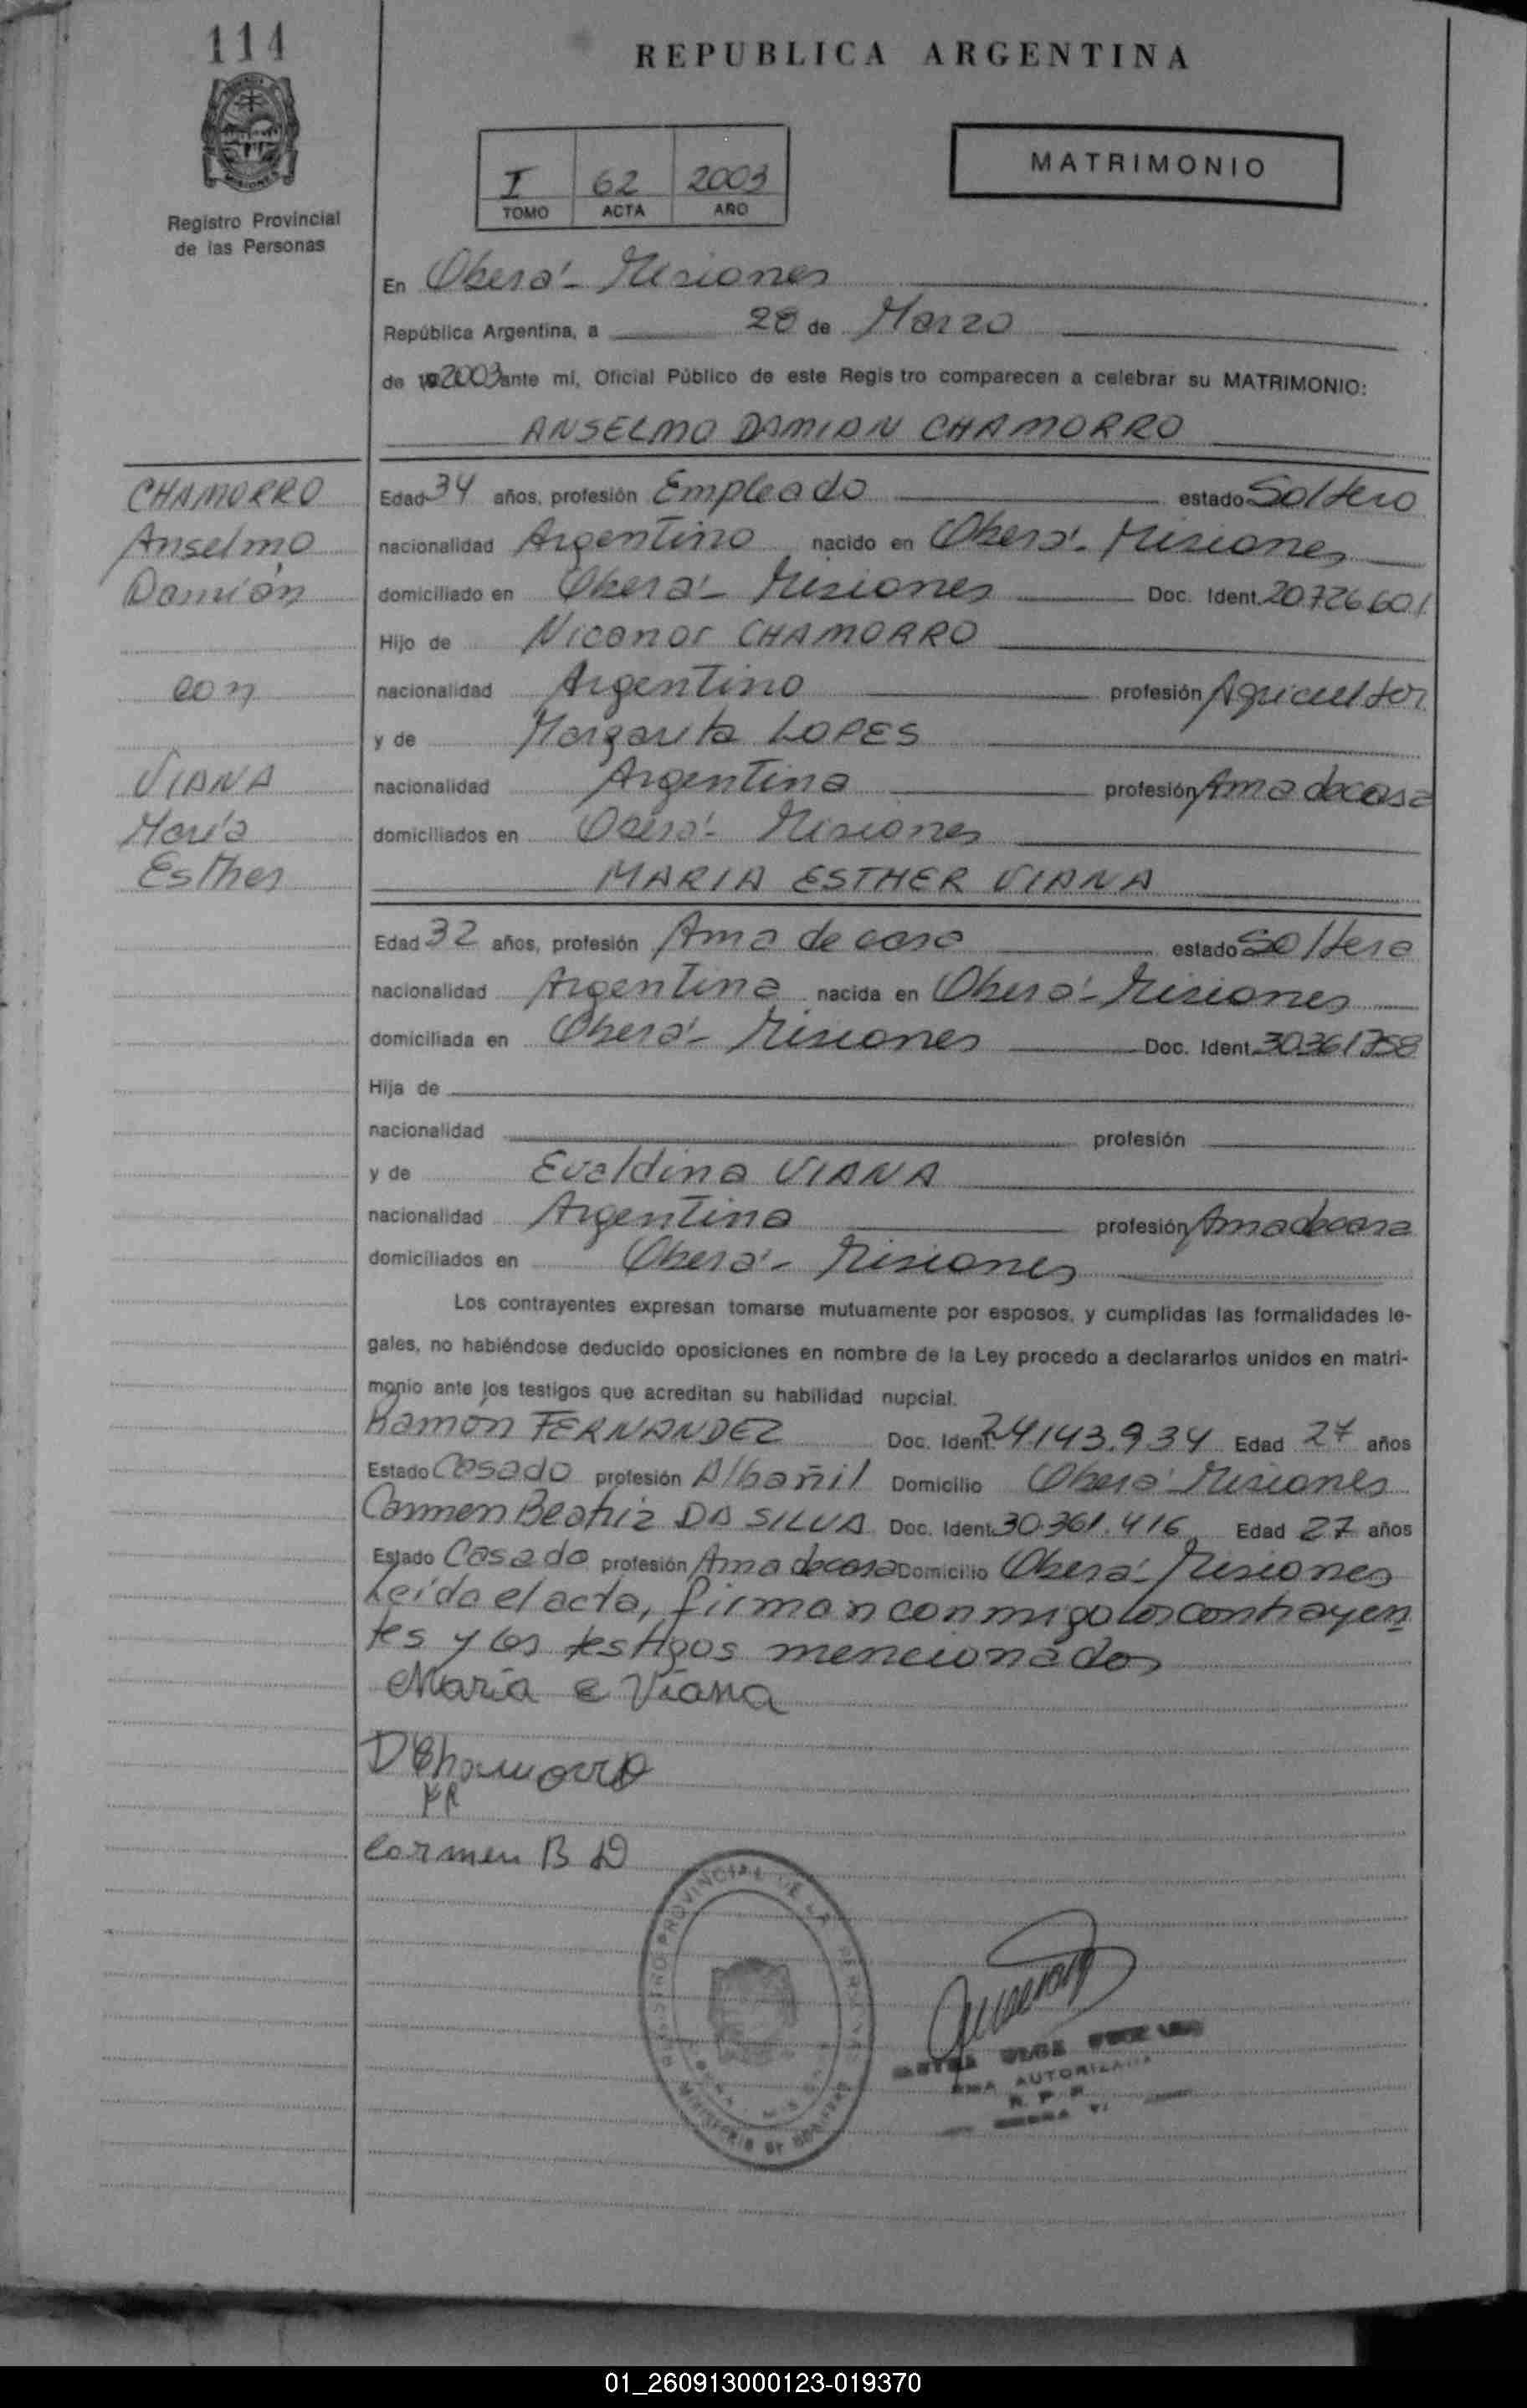 114
REPUBLICA ARGENTINA
I 62 2003
TOMO ACTA AÑO
MATRIMONIO
Registro Provincial
de las Personas
En Oberá - Misiones
República Argentina, a 28 de Marzo
de 2003 ante mi, Oficial Público de este Regis tro comparecen a celebrar su MATRIMONIO:
ANSELMO DAMIAN CHAMORRO
CHAMORRO
Anselmo
Damián
con
VIANA
María
Esther
Edad 34 años, profesión Empleado estado Soltero
nacionalidad Argentino nacido en Oberá - Misiones
domiciliado en Oberá - Misiones Doc. Ident. 20.726.601
Hijo de Nicanor CHAMORRO
nacionalidad Argentino profesión Agricultor
y de Margarita LOPES
nacionalidad Argentina profesión Ama de casa
domiciliados en Oberá - Misiones
MARIA ESTHER VIANA
Edad 32 años, profesión Ama de casa estado Soltera
nacionalidad Argentina nacida en Oberá - Misiones
domiciliada en Oberá - Misiones Doc. Ident. 30.361.758
Hija de
nacionalidad profesión
y de Evaldina VIANA
nacionalidad Argentina profesión Ama de casa
domiciliados en Oberá - Misiones
Los contrayentes expresan tomarse mutuamente por esposos, y cumplidas las formalidades le-
gales, no habiéndose deducido oposiciones en nombre de la Ley procedo a declararlos unidos en matri-
monio ante los testigos que acreditan su habilidad nupcial.
Ramón FERNANDEZ Doc. Ident. 24.143.934 Edad 27 años
Estado Casado profesión Albañil Domicilio Oberá - Misiones
Carmen Beatriz DA SILVA Doc. Ident. 30.361.416 Edad 27 años
Estado Casada profesión Ama de casa Domicilio Oberá - Misiones
Leída el acta, firman conmigo los contrayen
tes y los testigos mencionados
Maria E Viana
D Chamorro
Carmen B D
REGISTRO PROVINCIAL DE LAS PERSONAS
MINISTERIO DE GOBIERNO
AUTORIZADA
R. P. P.
01_260913000123-019370